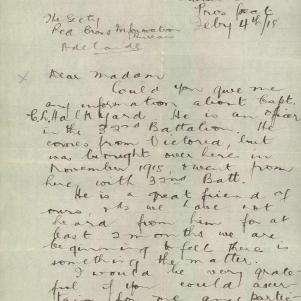 Prospect
Feby 4th/18
The Secty
Red Cross Information
Bureau
Adelaide
x
Dear Madam
Could you give me
any information about Capt.
He is an officer
in the 32nd Battalion. He
comes from Victoria, but
was brought over here in
November 1915, & went from
here with 32nd Batt.
He is a great friend of
ours, & as we have not
heard from him for at
least 2 months we are
beginning to feel there is
something the matter.
I would be very grate-
ful if you could ascer-
tain for me any partic-